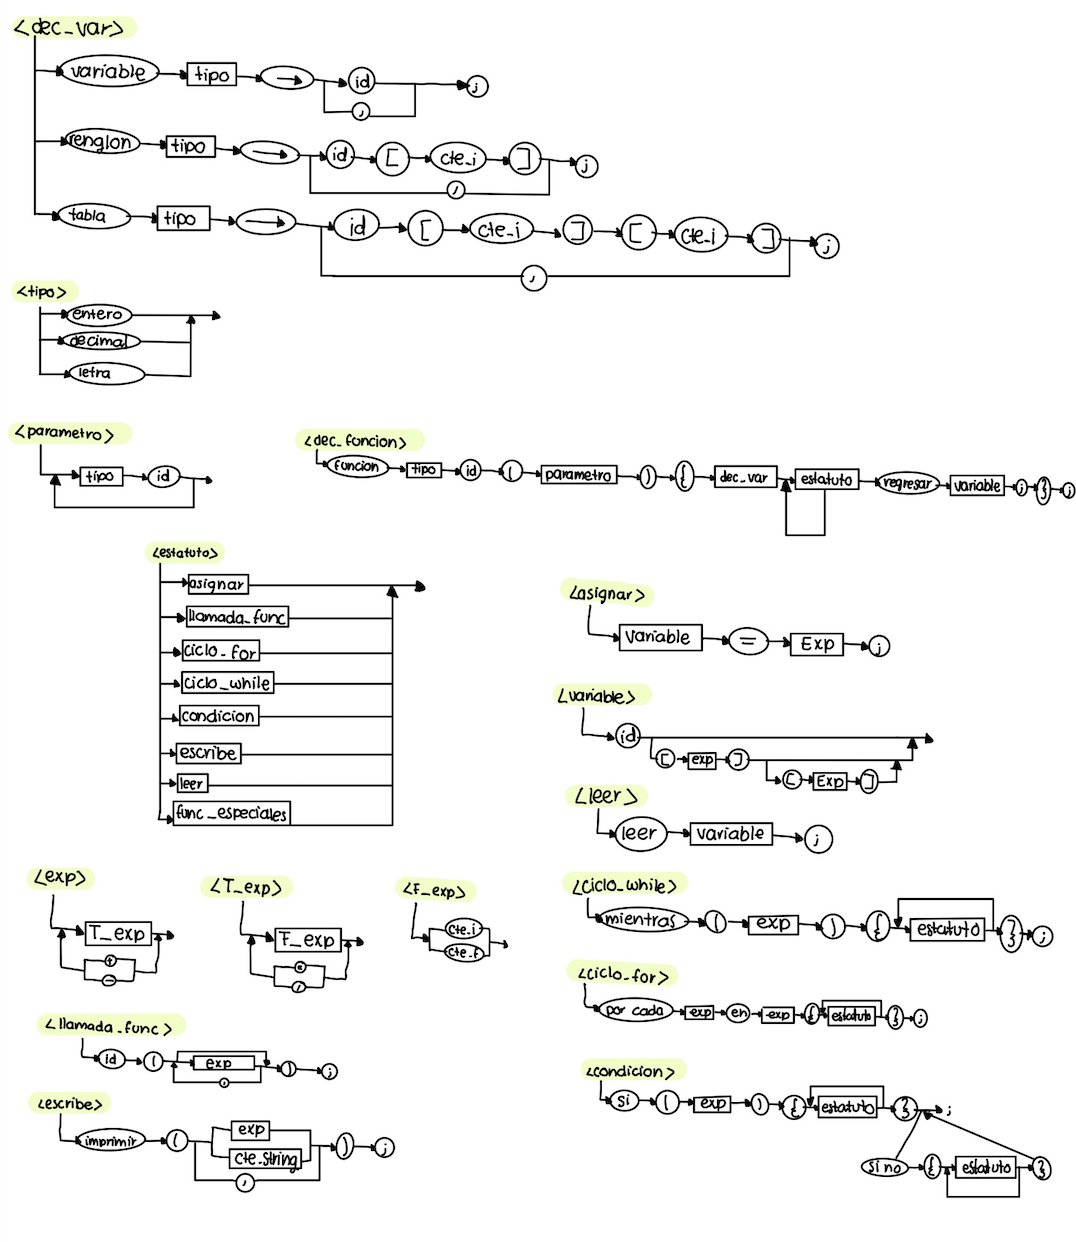 <dec_var>
variable tipo → id ;
,
renglon tipo → id [ cte_i ] ;
,
tabla tipo → id [ cte_i ] [ cte_i ] ;
,
<tipo>
entero
decimal
letra
<parametro>
tipo id
<dec_funcion>
funcion tipo id ( parametro ) { dec_var estatuto regresar variable ; } ;
<estatuto>
asignar
llamada_func
ciclo_for
ciclo_while
condicion
escribe
leer
func_especiales
<asignar>
variable = Exp ;
<variable>
id
[ exp ]
[ Exp ]
<leer>
leer variable ;
<exp>
T_exp
+
-
<T_exp>
F_exp
*
/
<F_exp>
cte.i
cte.f
<ciclo_while>
mientras ( exp ) { estatuto } ;
<ciclo_for>
por cada exp en exp { estatuto } ;
<llamada_func>
id ( exp ) ;
,
<condicion>
si ( exp ) { estatuto } ;
si no { estatuto }
<escribe>
imprimir ( exp ) ;
cte.string
,